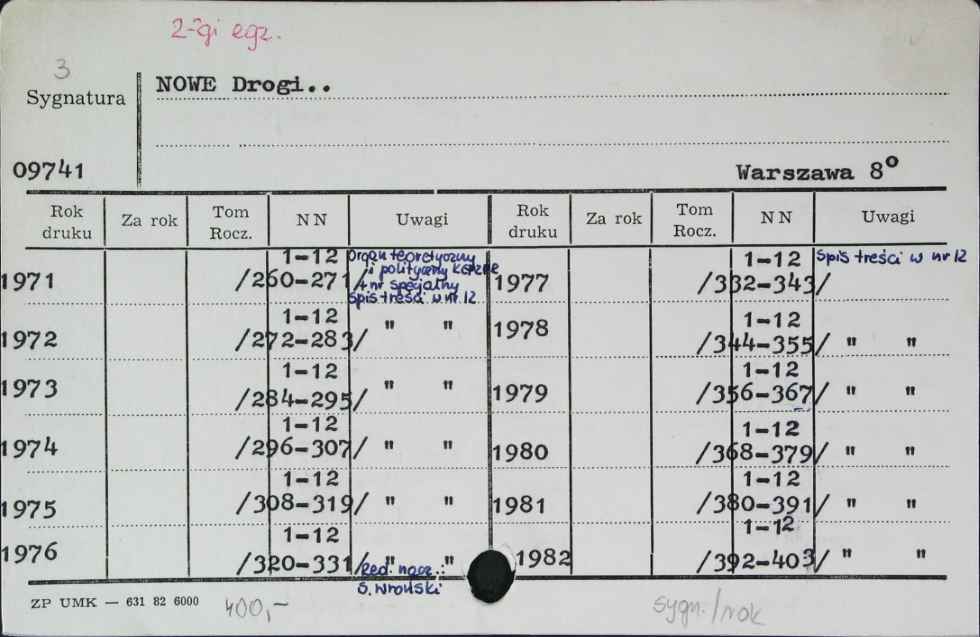 2-gi egz.
3
Sygnatura
NOWE Drogi..
09741
Warszawa 8º
Rok druku Za rok Tom Rocz. NN Uwagi Rok druku Za rok Tom Rocz. NN Uwagi
1971 1-12 /260-271/ Organ teoretyczny
i polityczny KC PZPR
4 nr specjalny
Spis treści w nr 12
1977 1-12 /332-343/ Spis treści w nr 12
1972 1-12 /272-283/ " "
1978 1-12 /344-355/ " "
1973 1-12 /284-295/ " "
1979 1-12 /356-367/ " "
1974 1-12 /296-307/ " "
1980 1-12 /368-379/ " "
1975 1-12 /308-319/ " "
1981 1-12 /380-391/ " "
1976 1-12 /320-331/ " "
Red. nacz.:
S. Wroński
1982 1-12 /392-403/ " "
ZP UMK — 631 82 6000
400,-
sygn./rok